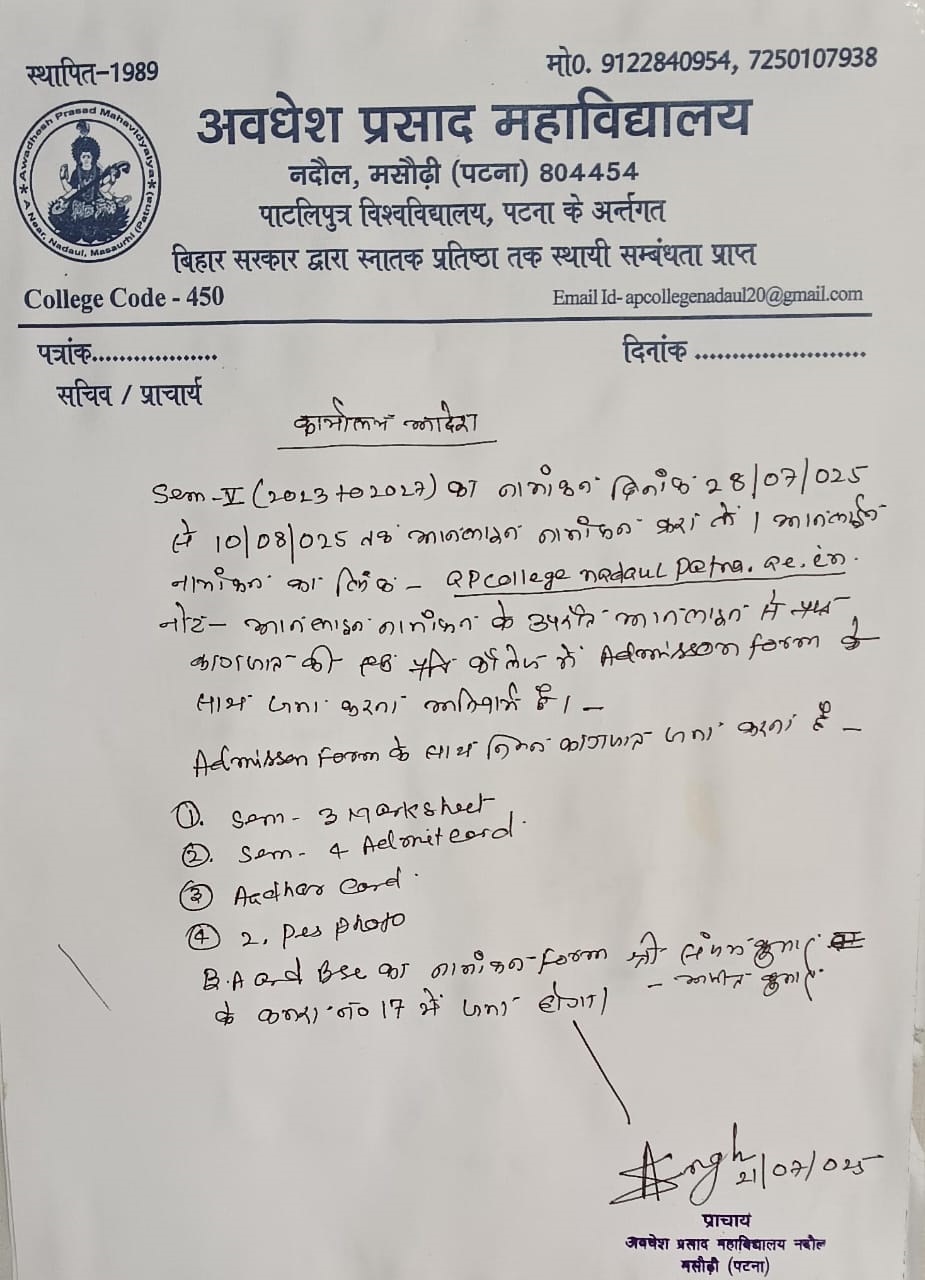 स्थापित-1989
मो0. 9122840954, 7250107938
Awadhesh Prasad Mahavidyalya
A Near, Nadaul, Masaurhi (Patna)
अवधेश प्रसाद महाविद्यालय
नदौल, मसौढ़ी (पटना) 804454
पाटलिपुत्र विश्वविद्यालय, पटना के अर्न्तगत
बिहार सरकार द्वारा स्नातक प्रतिष्ठा तक स्थायी सम्बंधता प्राप्त
College Code - 450
Email Id- apcollegenadaul20@gmail.com
पत्रांक..................
दिनांक ........................
सचिव / प्राचार्य
कार्यालय आदेश
Sem-V (2023 to 2027) का नामांकन दिनांक 28/07/025
से 10/08/025 तक आनलाइन नामांकन करा लें। आनलाईन
नामांकन का लिंक - apcollege nadaul patna. ac. in.
नोट- आनलाइन नामांकन के उपरांत आनलाइन से प्राप्त
कागजात की एक प्रति कॉलेज में Admisson form के
साथ जमा करना अनिवार्य है। -
Admisson form के साथ निम्न कागजात जमा करना है -
①. Sem - 3 Marksheet
②. Sem - 4 Admitcard.
③ Aadhar Card.
④ 2. Pes photo
B.A and Bsc का नामांकन-form श्री कुमार
- कुमार
के कमरा नं० 17 में जमा होगा।
Singh
21/07/025
प्राचार्य
अवधेश प्रसाद महाविद्यालय नदौल
मसौढ़ी (पटना)